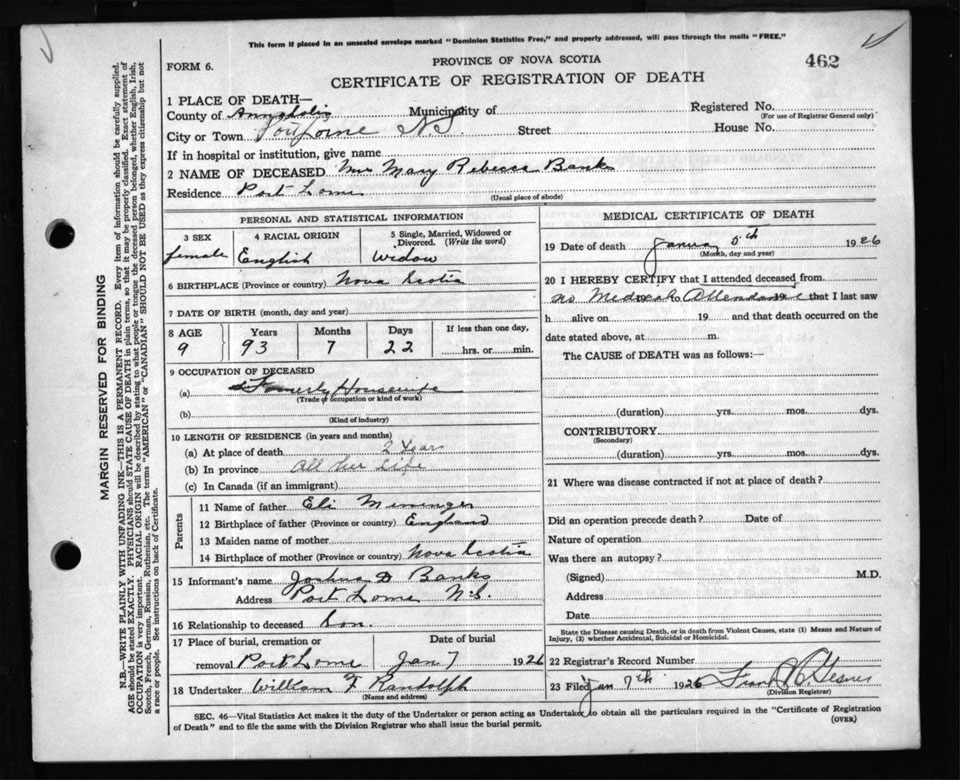 This form if placed in an unsealed envelope marked "Dominion Statistics Free," and properly addressed, will pass through the mails "FREE."
FORM 6.
PROVINCE OF NOVA SCOTIA
462
CERTIFICATE OF REGISTRATION OF DEATH
1 PLACE OF DEATH—
County of Annapolis Municipality of
Registered No.
(For use of Registrar General only)
City or Town Port Lorne N.S. Street House No.
If in hospital or institution, give name
2 NAME OF DECEASED Mrs Mary Rebecca Banks
Residence Port Lorne
(Usual place of abode)
PERSONAL AND STATISTICAL INFORMATION
3 SEX 4 RACIAL ORIGIN 5 Single, Married, Widowed or Divorced. (Write the word)
female English Widow
6 BIRTHPLACE (Province or country) Nova Scotia
7 DATE OF BIRTH (month, day and year)
8 AGE Years Months Days If less than one day,
9 93 7 22 hrs. or min.
9 OCCUPATION OF DECEASED
(a) Formerly Housewife
(Trade of occupation or kind of work)
(b)
(Kind of industry)
10 LENGTH OF RESIDENCE (in years and months)
(a) At place of death 2 Years
(b) In province All her Life
(c) In Canada (if an immigrant)
Parents
11 Name of father Eli
12 Birthplace of father (Province or country) England
13 Maiden name of mother
14 Birthplace of mother (Province or country) Nova Scotia
15 Informant's name Joshua D Banks
Address Port Lorne N.S.
16 Relationship to deceased Son.
17 Place of burial, cremation or Date of burial
removal Port Lorne Jan 7 1926
18 Undertaker William F Randolph
(Name and address)
MEDICAL CERTIFICATE OF DEATH
19 Date of death January 5th 1926
(Month, day and year)
20 I HEREBY CERTIFY that I attended deceased from
No Medical to Attendance 19 that I last saw
h alive on 19 and that death occurred on the
date stated above, at m.
The CAUSE of DEATH was as follows:—
(duration) yrs. mos. dys.
CONTRIBUTORY
(Secondary)
(duration) yrs. mos. dys.
21 Where was disease contracted if not at place of death?
Did an operation precede death? Date of
Nature of operation
Was there an autopsy?
(Signed) M.D.
Address
Date
State the Disease causing Death, or in death from Violent Causes, state (1) Means and Nature of
Injury, (2) whether Accidental, Suicidal or Homicidal.
22 Registrar's Record Number
23 Filed Jan 7th 1926 Frank W Gesner
(Division Registrar)
SEC. 46—Vital Statistics Act makes it the duty of the Undertaker or person acting as Undertaker to obtain all the particulars required in the "Certificate of Registration
of Death" and to file the same with the Division Registrar who shall issue the burial permit.
(OVER)
MARGIN RESERVED FOR BINDING
N.B.—WRITE PLAINLY WITH UNFADING INK—THIS IS A PERMANENT RECORD. Every item of information should be carefully supplied.
AGE should be stated EXACTLY. PHYSICIANS should STATE CAUSE OF DEATH in plain terms, so that it may be properly classified. Exact statement of
OCCUPATION is very important. RACIAL ORIGIN will be described by stating to what people or tongue the deceased person belonged, whether English, Irish,
Scotch, French, German, Russian, Ruthenian, etc. The terms "AMERICAN" or "CANADIAN" SHOULD NOT BE USED as they express citizenship but not
a race or people. See instructions on back of Certificate.